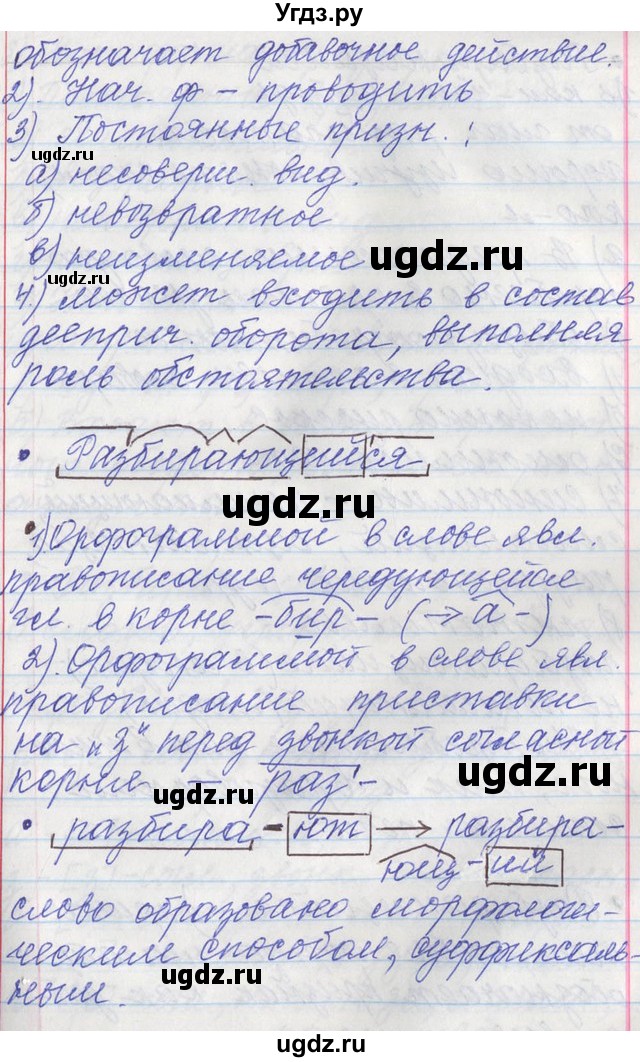 Угдз.ру
обозначает добавочное действие.
2). Нач. ф – проводить
3) Постоянные призн. :
ugdz.ru
а) несоверш. вид.
б) невозвратное
в) неизменяемое
ugdz.ru
ugdz.ru
4) может входить в состав
дееприч. оборота, выполняя
роль обстоятельства.
• Разбирающийся
ugdz.ru
1) Орфограммой в слове явл.
правописание чередующейся
ugdz.ru
гл. в корне -бир- (→ а -)
2). Орфограммой в слове явл.
правописание приставки
на "з" перед звонкой согласной
ugdz.ru
корня – раз -
ugdz.ru
• разбира - ют → разбира-
ющ - ий
слово образовано морфологи-
ugdz.ru
ческим способом, суффиксаль-
ным.
ugdz.ru
ugdz.ru